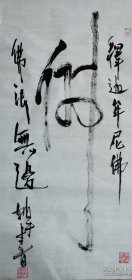 佛
釋迦牟尼佛
佛法無邊